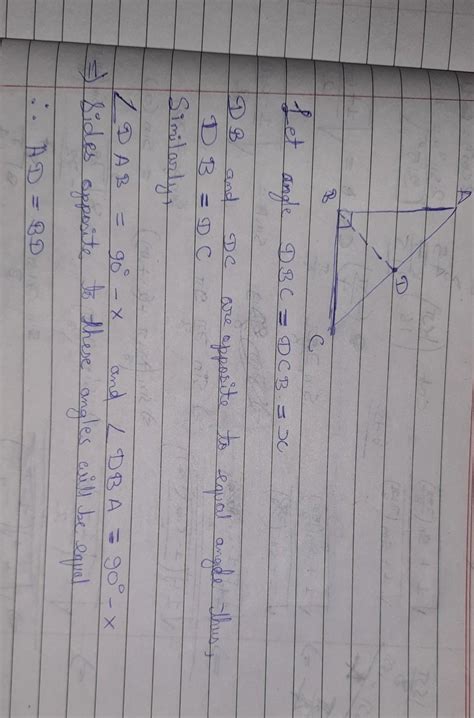 A
D
B
C
Let angle DBC = DCB = x
DB and DC are opposite to equal angle thus,
DB = DC
Similarly,
∠DAB = 90° - x and ∠DBA = 90° - x
⇒ Sides opposite to these angles will be equal
∴ AD = BD